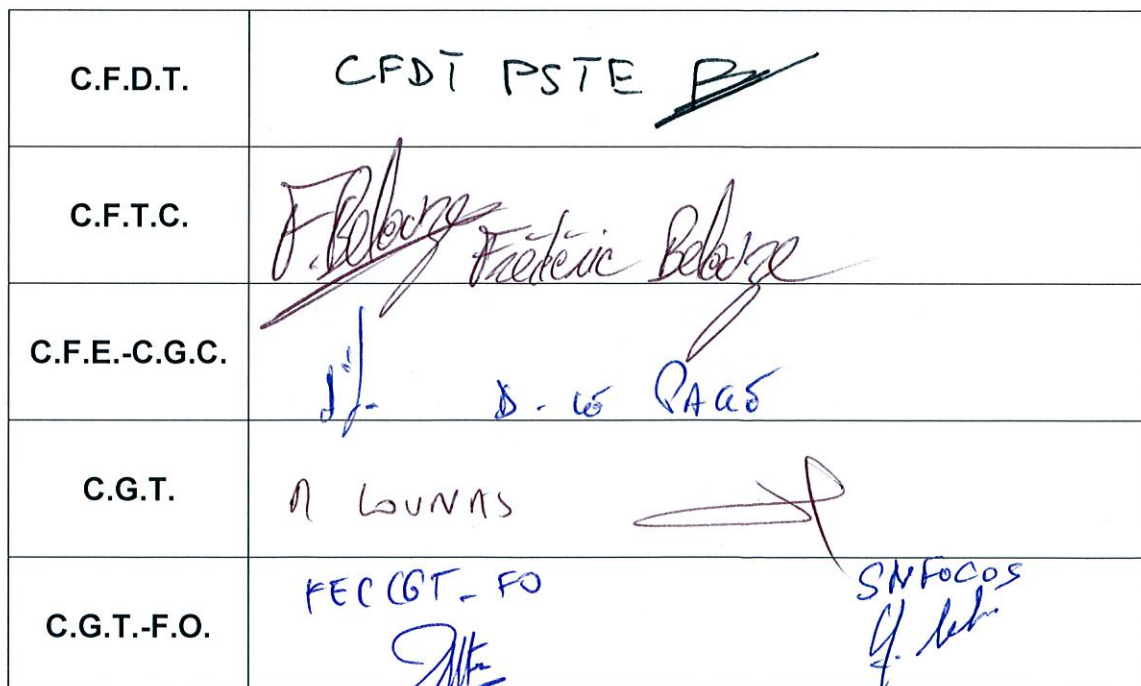 C.F.D.T.
CFDT PSTE
C.F.T.C.
F. Belouze Frédéric Belouze
C.F.E.-C.G.C.
D. LE PAGE
C.G.T.
LOUNAS
C.G.T.-F.O.
FEC CGT-FO
SNFOCOS